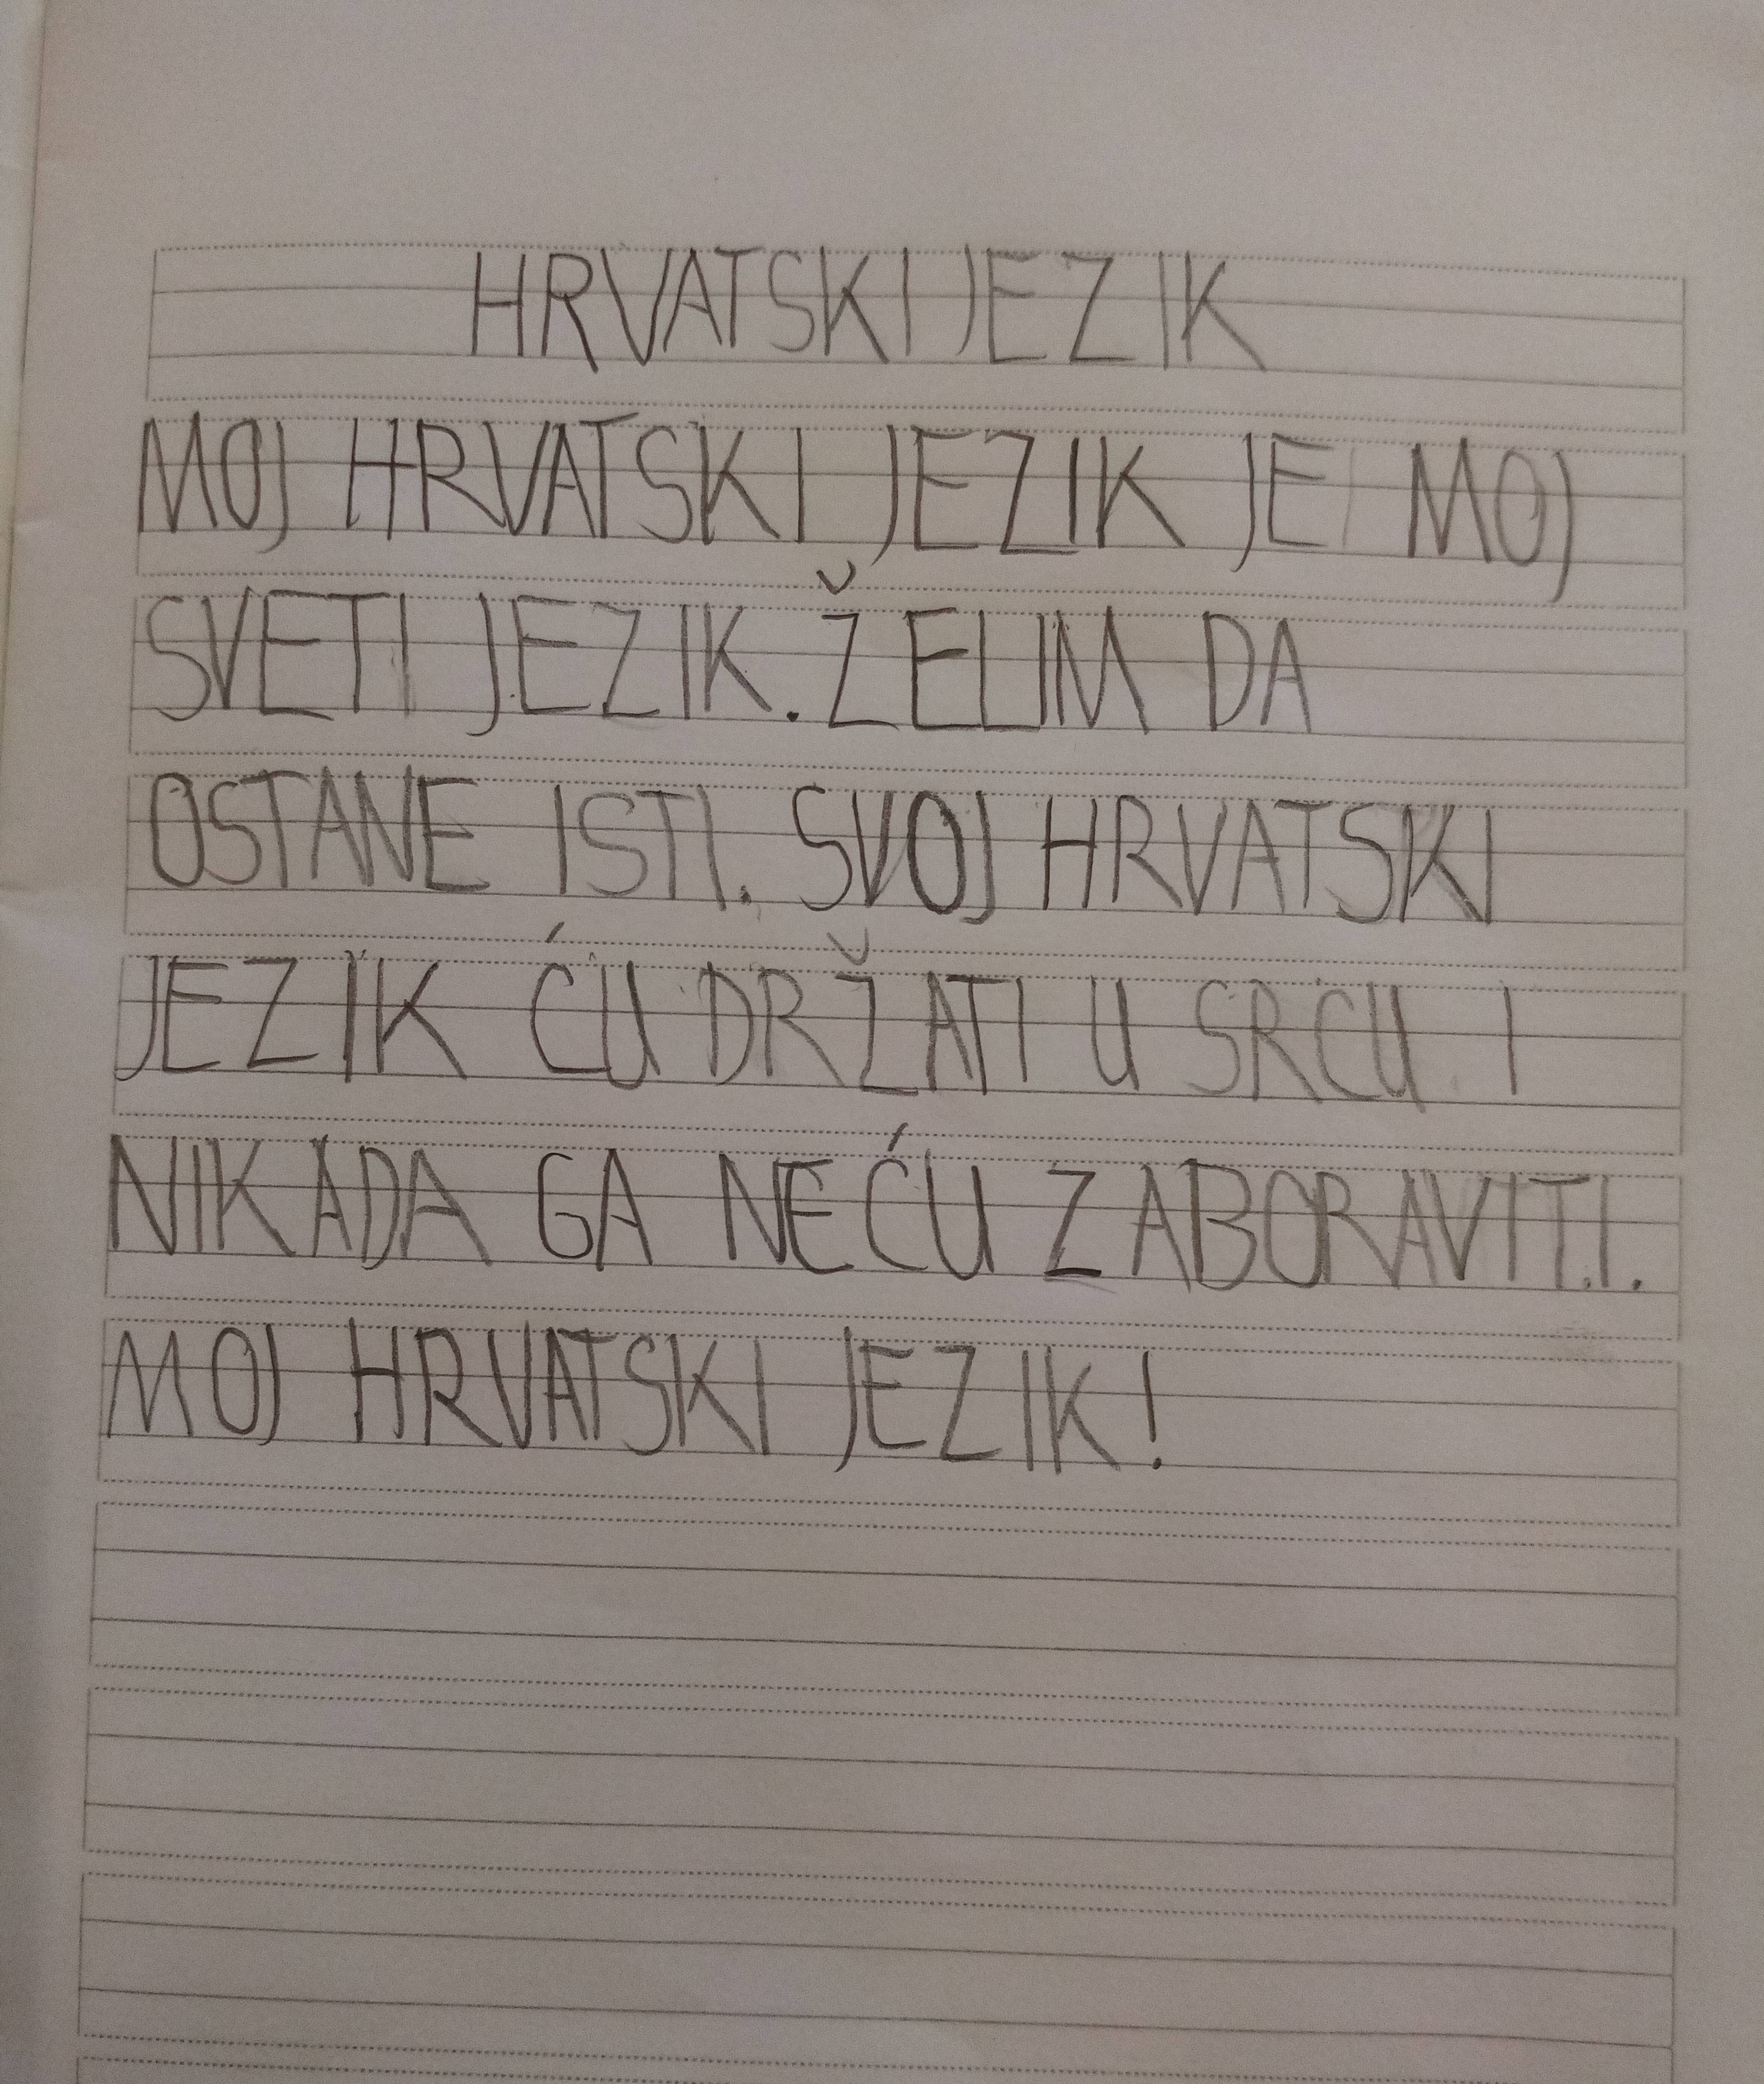 HRVATSKI JEZIK
MOJ HRVATSKI JEZIK JE MOJ
SVETI JEZIK. ŽELIM DA
OSTANE ISTI. SVOJ HRVATSKI
JEZIK ĆU DRŽATI U SRCU I
NIKADA GA NEĆU ZABORAVITI.
MOJ HRVATSKI JEZIK!